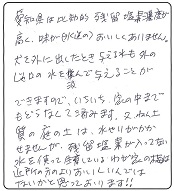 愛知県は比較的 残留塩素濃度が
高く、味が(水道の)おいしくありません。
犬を外に出したとき 与える水も外の
じゃ口の水を 与えることが
できますので、いちいち、家の中まで
もどらなくて済みます。又、ねん土
質の庭の土は、水やりがかか
せませんが、残留塩素が入ってない
水を使って 住んでいるわが家の植物は
近所の方のよりおいしいんでは
ないかと思っております!!